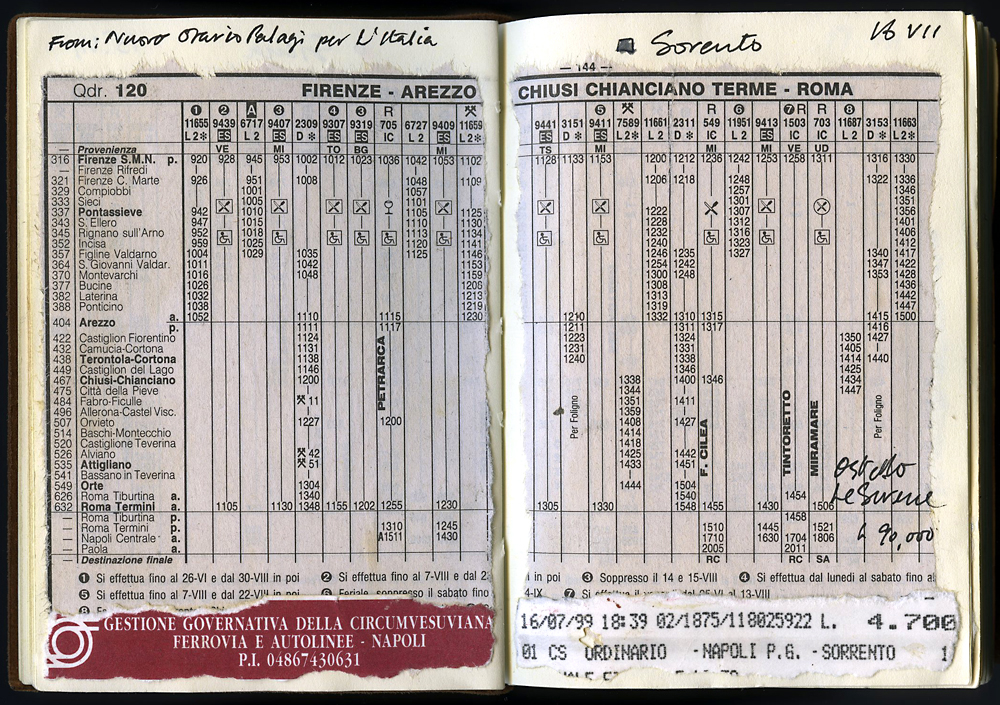 From: Nuovo Orario Palagi per L'Italia
Qdr. 120 FIRENZE - AREZZO
❶ ❷ A ❸ ❹ ❸ R
11655 9439 6717 9407 2309 9307 9319 705 6727 9409 11659
L2* ES L2 ES D* ES ES IC L2 ES L2*
— Provenienza VE MI TO BG MI
316 Firenze S.M.N. p. 920 928 945 953 1002 1012 1023 1036 1042 1053 1102
— Firenze Rifredi
321 Firenze C. Marte 926 951 1008 1048 1109
329 Compiobbi 1001 1057
333 Sieci 1005 1101
337 Pontassieve 942 1010 1105 1125
343 S. Ellero 947 1015 1110 1130
345 Rignano sull'Arno 952 1018 1113 1134
352 Incisa 959 1025 1120 1141
357 Figline Valdarno 1004 1029 1035 1125 1146
364 S. Giovanni Valdar. 1011 1042 1153
370 Montevarchi 1016 1048 1159
377 Bucine 1026 1208
382 Laterina 1032 1213
388 Ponticino 1038 1219
404 Arezzo a. 1052 1110 1115 1230
p. 1111 1117
422 Castiglion Fiorentino 1124
432 Camucia-Cortona 1131
438 Terontola-Cortona 1138
449 Castiglion del Lago 1146
467 Chiusi-Chianciano 1200
475 Città della Pieve
484 Fabro-Ficulle 11
496 Allerona-Castel Visc.
507 Orvieto 1227 1200
514 Baschi-Montecchio
520 Castiglione Teverina
526 Alviano 42
535 Attigliano 51
541 Bassano in Teverina
549 Orte 1304
626 Roma Tiburtina a. 1340
632 Roma Termini a. 1105 1130 1348 1155 1202 1255 1230
— Roma Tiburtina p.
— Roma Termini p. 1310 1245
— Napoli Centrale a. A1511 1430
— Paola a.
— Destinazione finale
PETRARCA
❶ Si effettua fino al 26-VI e dal 30-VIII in poi ❷ Si effettua fino al 7-VIII e dal 2
❺ Si effettua fino al 7-VIII e dal 22-VIII in poi ❻ Feriale, soppresso il sabato fino
GESTIONE GOVERNATIVA DELLA CIRCUMVESUVIANA
FERROVIA E AUTOLINEE - NAPOLI
P.I. 04867430631
Sorento
16 VII
— 144 —
CHIUSI CHIANCIANO TERME - ROMA
❺ R ❻ ❸ ❼R R ❽
9441 3151 9411 7589 11661 2311 549 11951 9413 1503 703 11687 3153 11663
ES D* ES L2* L2 D* IC L2 ES IC IC L2 D* L2
TS MI MI MI VE UD
1128 1133 1153 1200 1212 1236 1242 1253 1258 1311 1316 1330
1206 1218 1248 1322 1336
1257 1346
1301 1351
1222 1307 1356
1228 1312 1401
1232 1316 1406
1240 1323 1412
1246 1235 1327 1340 1417
1254 1242 1347 1422
1300 1248 1353 1428
1308 1436
1313 1442
1319 1447
1210 1332 1310 1315 1415 1500
1211 1311 1317 1416
1223 1324 1350 1427
1231 1331 1405
1240 1338 1414 1440
1346 1425
1338 1400 1346 1434
1344 1447
1351 1411
1359
1408 1427
1414
1418
1425 1442
1433 1451
1444 1504
1540 1454
1305 1330 1548 1455 1430 1506
1458
1510 1445 1521
1710 1630 1704 1806
2005 2011
RC RC SA
Per Foligno
F. CILEA
TINTORETTO
MIRAMARE
Per Foligno
Ostello
Le Sirene
L 90,000
i in poi ❸ Soppresso il 14 e 15-VIII ❹ Si effettua dal lunedì al sabato fino a
4-IX
16/07/99 18:39 02/1875/118025922 L. 4.700
01 CS ORDINARIO -NAPOLI P.G. -SORRENTO 1